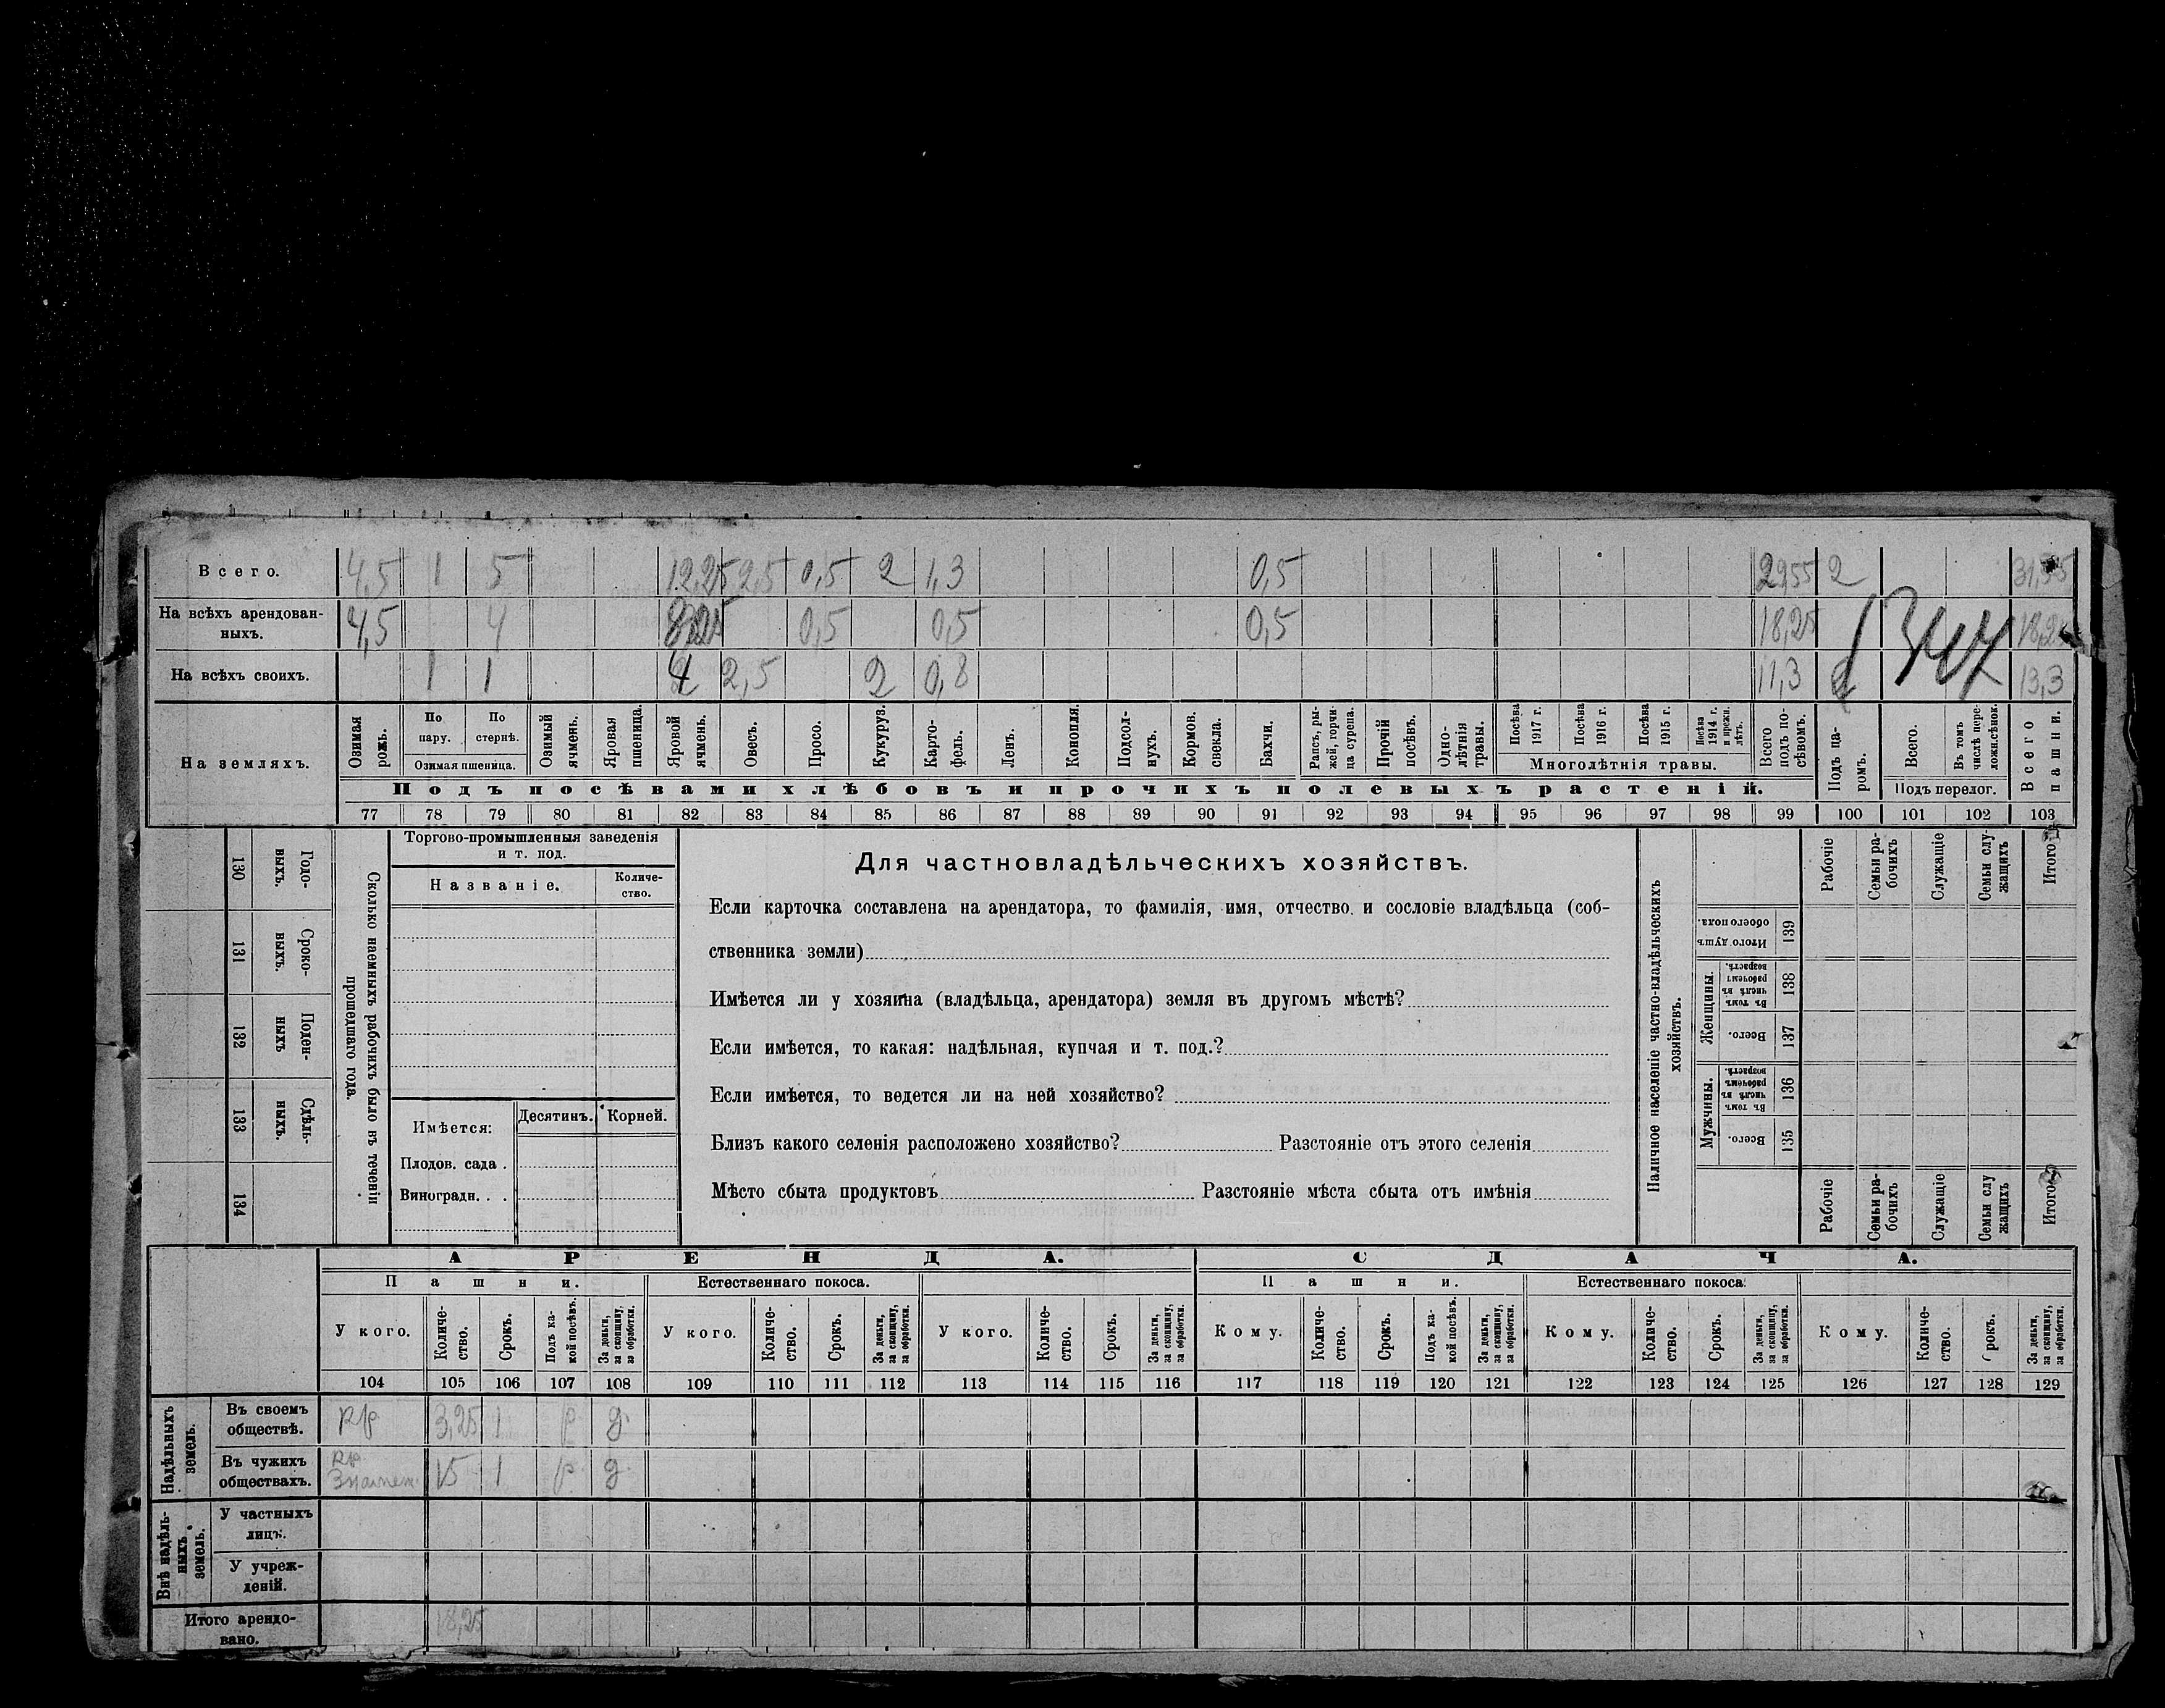 Всего. 4,5 1 5 12,25 2,5 0,5 2 1,3 0,5 29,55 2 31,55
На всѣхъ арендован-
ныхъ. 4,5 4 8,25 0,5 0,5 0,5 18,25 18,25
1347
На всѣхъ своихъ. 1 1 4 2,5 2 0,8 11,3 2 13,3
На земляхъ.
Озимая рожь.
По пару.
По стернѣ.
Озимая пшеница.
Озимый ячмень.
Яровая пшеница.
Яровой ячмень.
Овесъ.
Просо.
Кукуруз.
Карто-
фель.
Ленъ.
Конопля.
Подсол-
нухъ.
Кормов. свекла.
Бахчи.
Рапсъ, ры-
жей, горчи-
ца сурепа.
Прочій посѣвъ.
Одно-
лѣтнія травы.
Посѣва 1917 г.
Посѣва 1916 г.
Посѣва 1915 г.
Посѣва 1914 г. и прежн. лѣтъ.
Многолѣтнія травы.
Всего подъ по-
сѣвомъ.
Подъ па-
ромъ.
Всего.
Въ томъ числѣ пере-
ложн.сѣнок.
Подъ перелог.
Всего пашни.
Подъ посѣвами хлѣбовъ и прочихъ полевыхъ растеній.
77 78 79 80 81 82 83 84 85 86 87 88 89 90 91 92 93 94 95 96 97 98 99 100 101 102 103
130 Годо-
выхъ.
131 Сроко-
выхъ.
132 Поден-
ныхъ
133 Сдѣль-
ныхъ.
134
Сколько наемныхъ рабочихъ было въ теченіи
прошедшаго года.
Торгово-промышленныя заведенія
и т. под.
Названіе.
Количе-
ство.
Имѣется:
Десятинъ. Корней.
Плодов. сада .
Виноградн. . .
Для частновладѣльческихъ хозяйствъ.
Если карточка составлена на арендатора, то фамилія, имя, отчество и сословіе владѣльца (соб-
ственника земли)
Имѣется ли у хозяина (владѣльца, арендатора) земля въ другомъ мѣстѣ?
Если имѣется, то какая: надѣльная, купчая и т. под.?
Если имѣется, то ведется ли на ней хозяйство?
Близъ какого селенія расположено хозяйство? Разстояніе отъ этого селенія
Мѣсто сбыта продуктовъ Разстояніе мѣста сбыта отъ имѣнія
Наличное населеніе частно-владѣльческихъ
хозяйствъ.
Рабочіе
Семьи ра-
бочихъ
Служащіе
Семьи слу-
жащихъ
Итого
Итого душъ обоего пола. 139
Женщины.
Въ томъ числѣ въ рабочемъ возрастѣ. 138
Всего. 137
Мужчины.
Въ томъ числѣ въ рабочемъ возрастѣ. 136
Всего. 135
Рабочіе
Семьи ра-
бочихъ
Служащіе
Семьи слу
жащихъ
Итого
АРЕНДА. СДАЧА.
Пашни. Естественнаго покоса. Пашни. Естественнаго покоса.
У кого.
Количе-
ство.
Срокъ.
Подъ ка-
кой посѣвъ.
За деньги,
за скопщину,
за обработки.
У кого.
Количе-
ство.
Срокъ.
За деньги,
за скопщину,
за обработки.
У кого.
Количе-
ство.
Срокъ.
За деньги,
за скопщину,
за обработки.
Кому.
Количе-
ство.
Срокъ.
Подъ ка-
кой посѣвъ.
За деньги,
за скопщину,
за обработки.
Кому.
Количе-
ство.
Срокъ.
За деньги,
за скопщину,
за обработки.
Кому.
Количе-
ство.
Срокъ.
За деньги,
за скопщину,
за обработки.
104 105 106 107 108 109 110 111 112 113 114 115 116 117 118 119 120 121 122 123 124 125 126 127 128 129
Надѣльныхъ
земель.
Въ своемъ
обществѣ. кр 3,25 1 р д
Въ чужихъ
обществахъ. кр. Знамен. 15 1 р. д
Внѣ надѣль-
ныхъ
земель.
У частныхъ
лицъ.
У учреж-
деній.
Итого арендо-
вано. 18,25